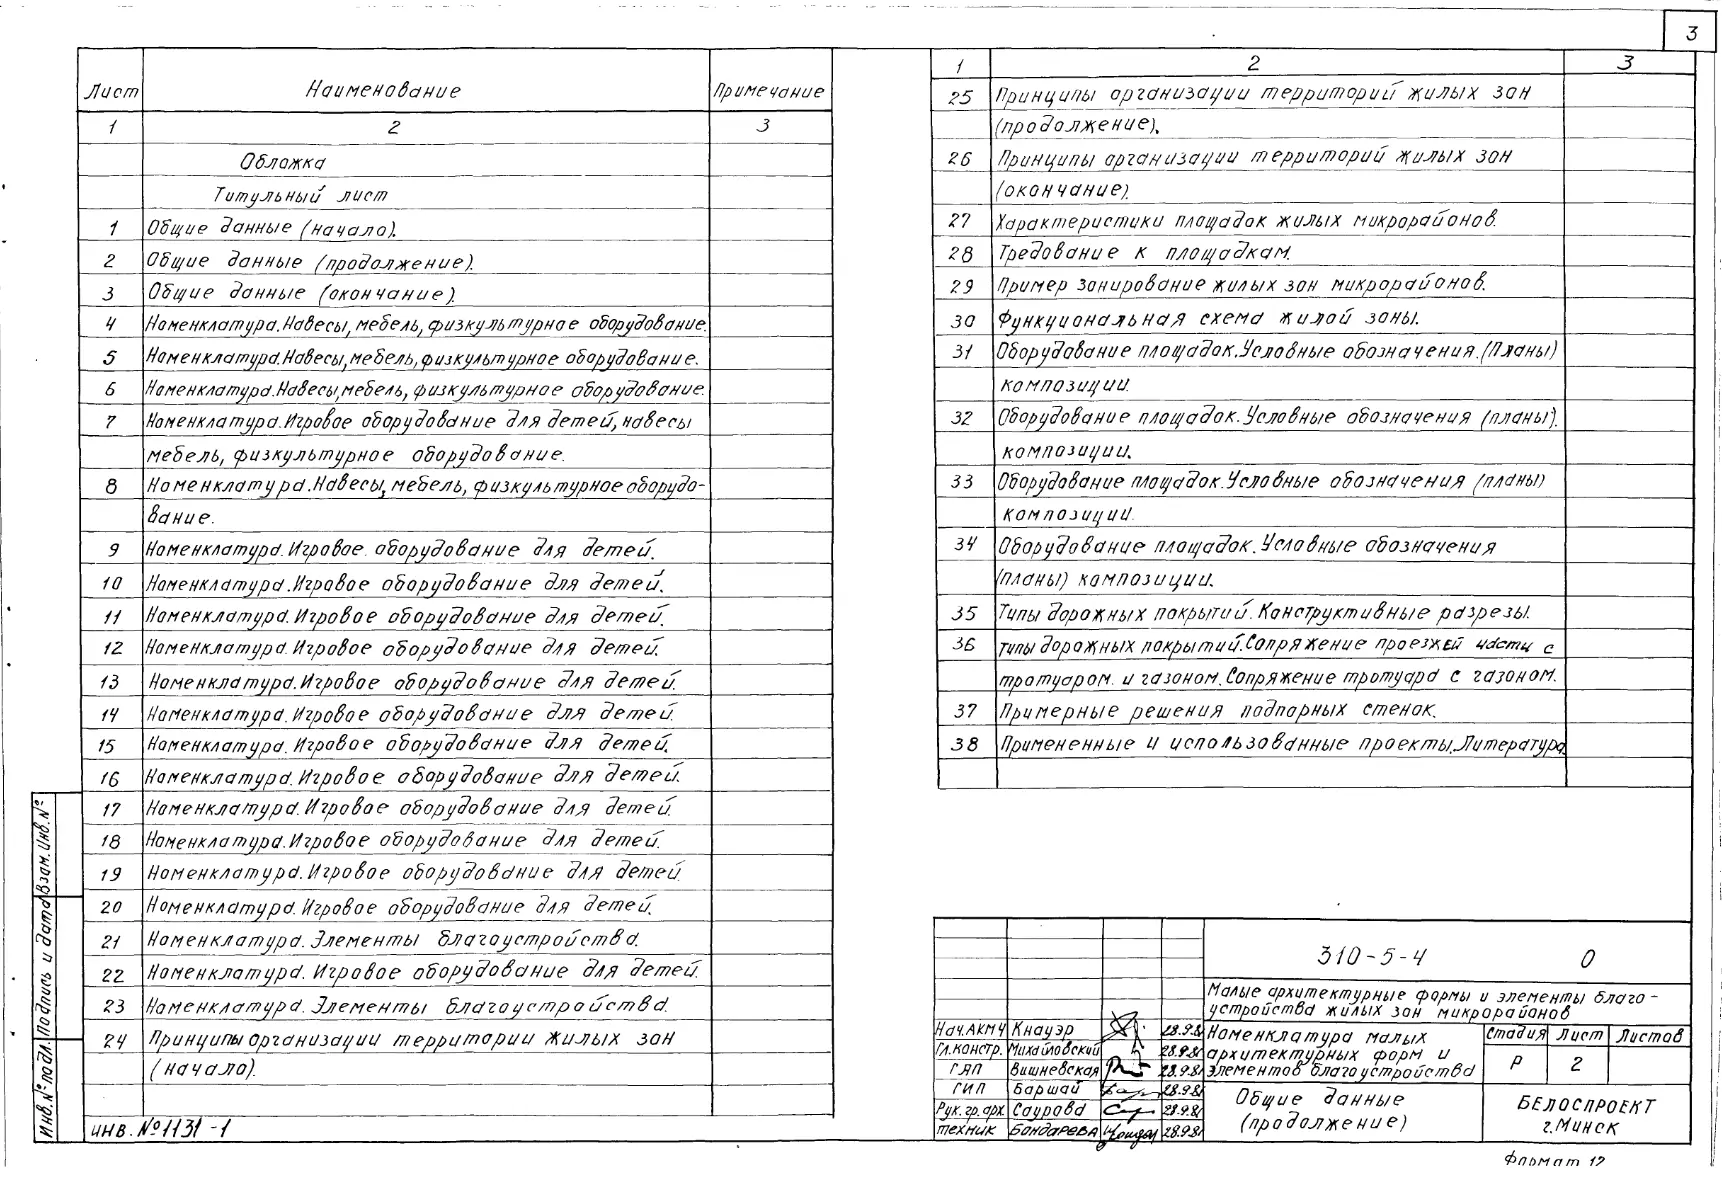 3
Лист Наименование Примечание
1 2 3
Обложка
Титульный лист
1 Общие данные (начало).
2 Общие данные (продолжение).
3 Общие данные (окончание).
4 Номенклатура. Навесы, мебель, физкультурное оборудование.
5 Номенклатура. Навесы, мебель, физкультурное оборудование.
6 Номенклатура. Навесы, мебель, физкультурное оборудование.
7 Номенклатура. Игровое оборудование для детей, навесы
мебель, физкультурное оборудование.
8 Номенклатура. Навесы, мебель, физкультурное оборудо-
вание.
9 Номенклатура. Игровое оборудование для детей.
10 Номенклатура. Игровое оборудование для детей.
11 Номенклатура. Игровое оборудование для детей.
12 Номенклатура. Игровое оборудование для детей.
13 Номенклатура. Игровое оборудование для детей.
14 Номенклатура. Игровое оборудование для детей.
15 Номенклатура. Игровое оборудование для детей.
16 Номенклатура. Игровое оборудование для детей.
17 Номенклатура. Игровое оборудование для детей.
18 Номенклатура. Игровое оборудование для детей.
19 Номенклатура. Игровое оборудование для детей.
20 Номенклатура. Игровое оборудование для детей.
21 Номенклатура. Элементы благоустройства.
22 Номенклатура. Игровое оборудование для детей.
23 Номенклатура. Элементы благоустройства.
24 Принципы организации территории жилых зон
(начало).
инв. №1131-1
Инв.№подл. Подпись и дата Взам.инв.№
1 2 3
25 Принципы организации территорий жилых зон
(продолжение).
26 Принципы организации территорий жилых зон
(окончание).
27 Характеристики площадок жилых микрорайонов.
28 Требование к площадкам.
29 Пример зонирование жилых зон микрорайонов.
30 Функциональная схема жилой зоны.
31 Оборудование площадок. Условные обозначения. (Планы)
композиции.
32 Оборудование площадок. Условные обозначения (планы).
композиции.
33 Оборудование площадок. Условные обозначения (планы)
композиции.
34 Оборудование площадок. Условные обозначения
(планы) композиции.
35 Типы дорожных покрытий. Конструктивные разрезы.
36 Типы дорожных покрытий. Сопряжение проезжей части с
тротуаром и газоном. Сопряжение тротуара с газоном.
37 Примерные решения подпорных стенок.
38 Примененные и использованные проекты. Литература.
310-5-4 0
Малые архитектурные формы и элементы благо-
устройства жилых зон микрорайонов
Нач.АКМ4 Кнауэр 28.9.81
Гл.констр. Михайловский 28.9.81
ГАП Вишневская 28.9.81
ГИП Баршай 28.9.81
Рук.гр.арх. Саурова 28.9.81
техник Бондарева 28.9.81
Номенклатура малых
архитектурных форм и
элементов благоустройства
Стадия Лист Листов
Р 2
Общие данные
(продолжение)
БЕЛОСПРОЕКТ
г.Минск
Формат 12